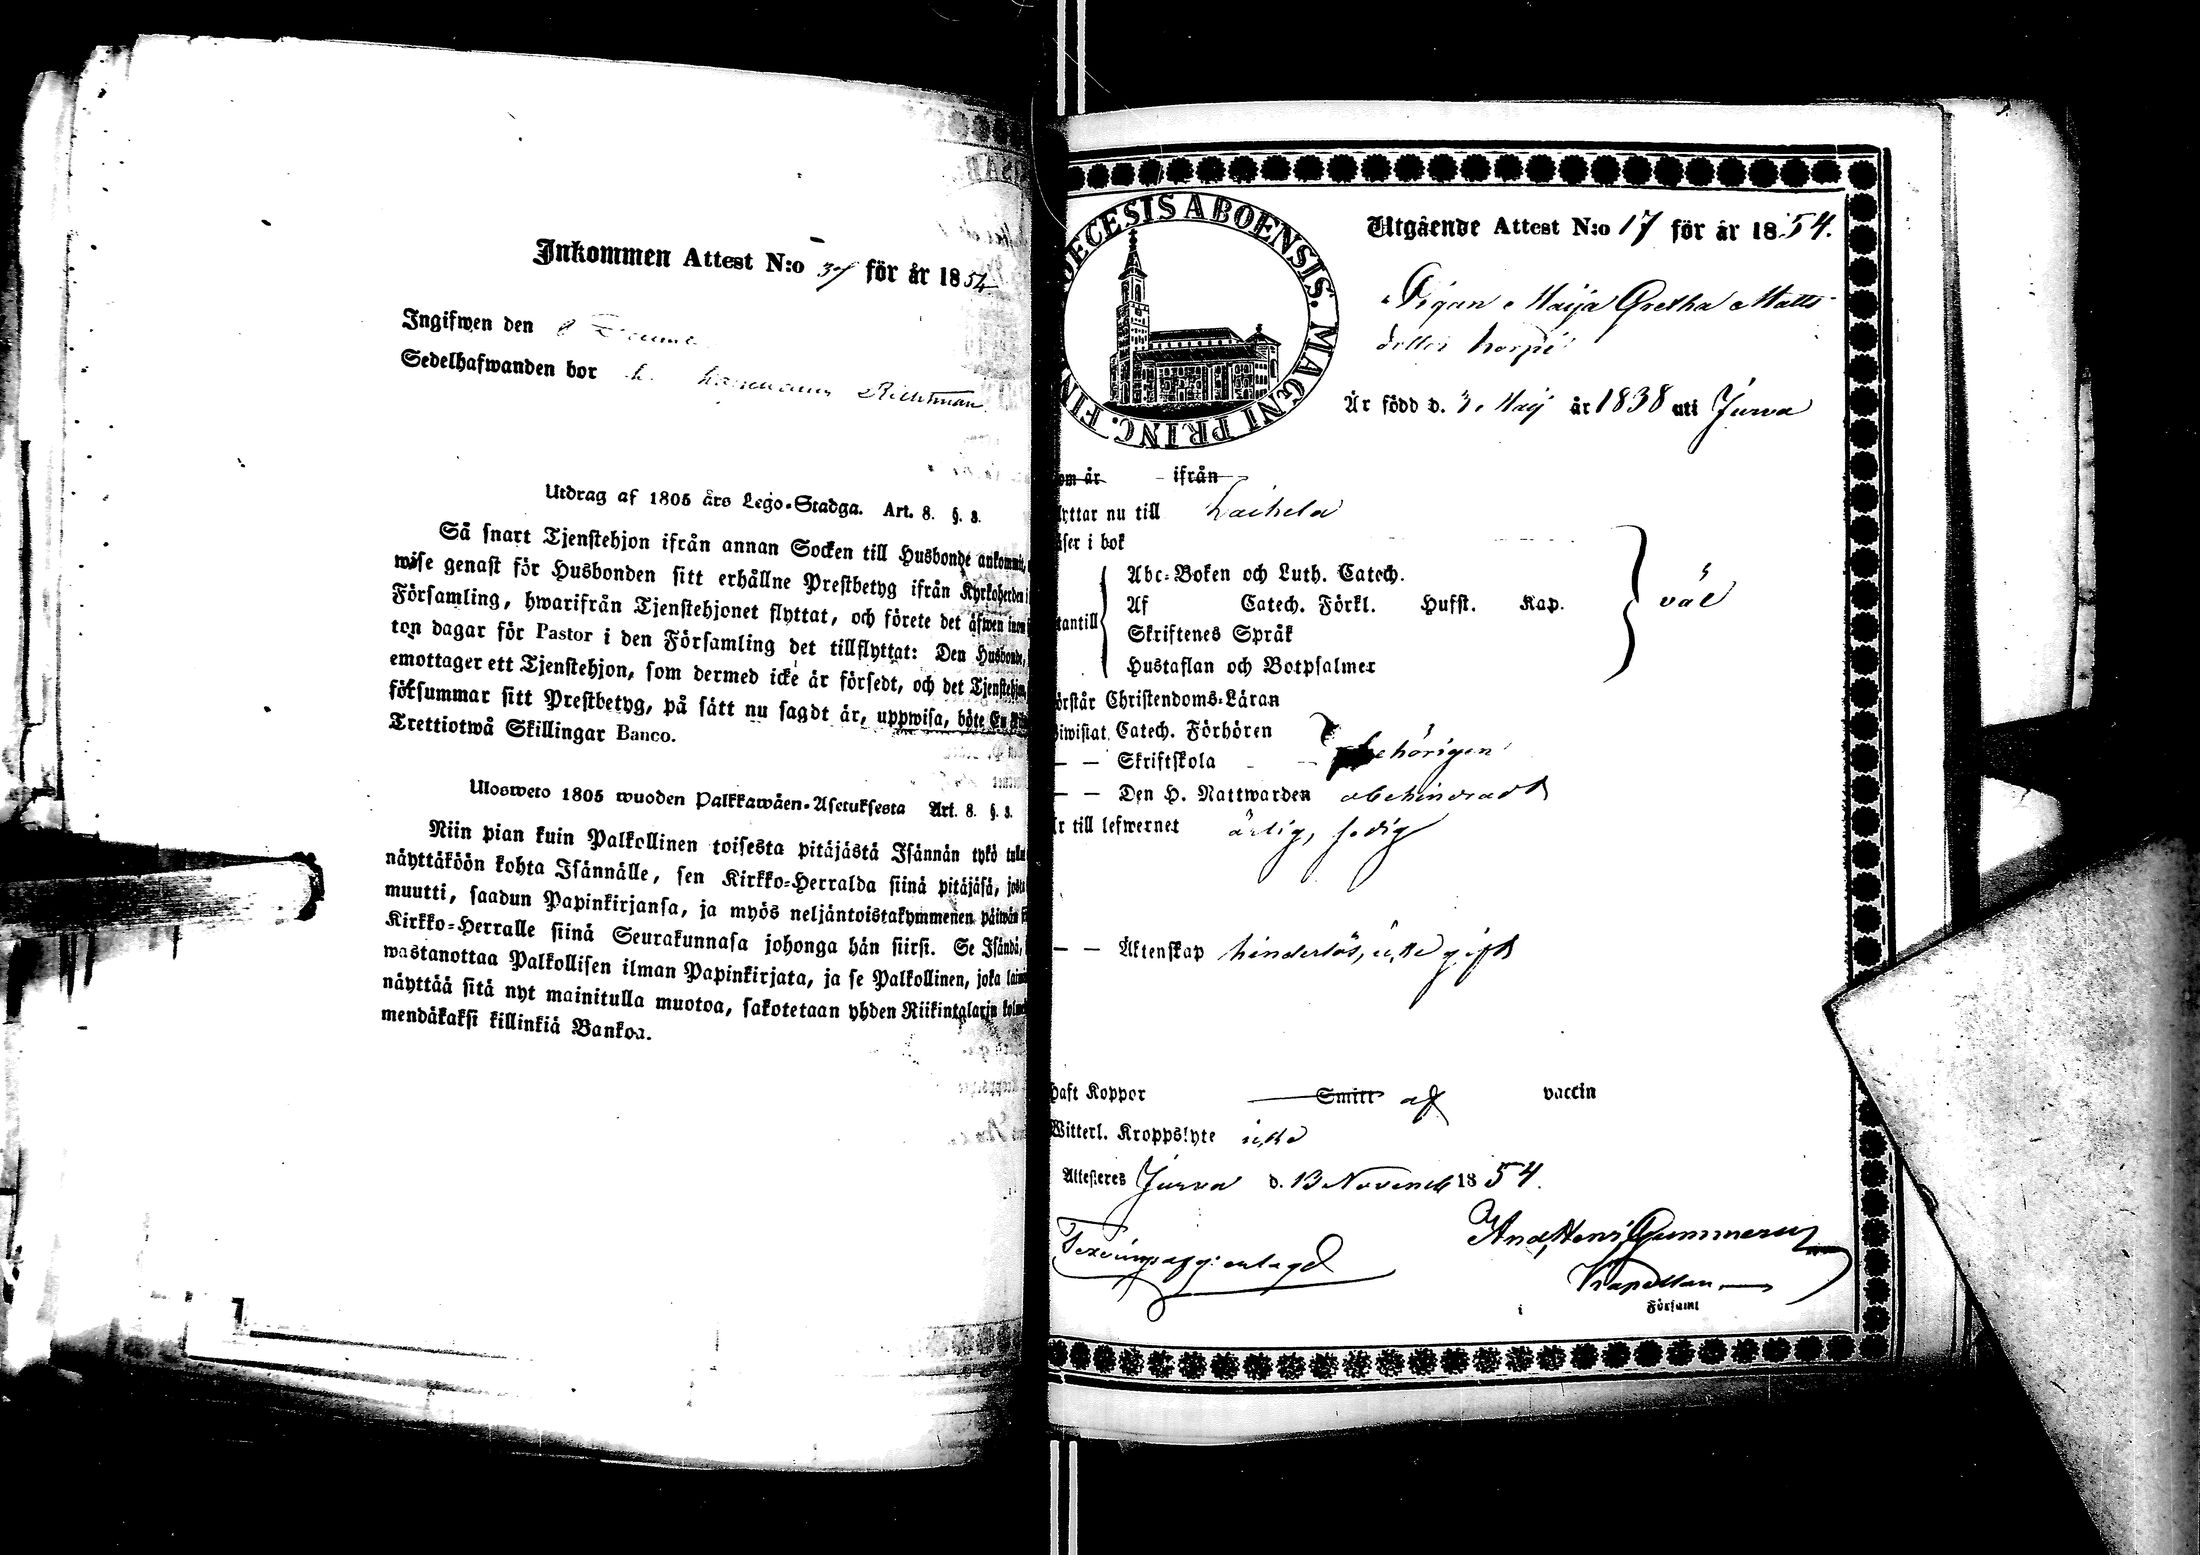 Inkommen Attest N:o för år 1854
Ingifwen den 8
Sedelhafwanden bor
Utdrag af 1805 års Lego-Stadga. Art. 8. §. 3.
Så snart Tjenstehjon ifrån annan Socken till Husbonde
wise genast för Husbonden sitt erhållne Prestbetyg ifrån Kyrkoherden i
Församling, hwarifrån Tjenstehjonet flyttat, och förete det äfwen inom
ton dagar för Pastor i den Församling det tillflyttat: Den Husbonde,
emottager ett Tjenstehjon, som dermed icke är försedt, och det Tjenstehjon,
försummar sitt Prestbetyg, på sätt nu sagdt är, uppwisa, böte En
Trettiotwå Skillingar Banco.
Ulosweto 1805 wuoden Palkkawäen-Asetuksesta Art. 8. §. 3.
Niin pian kuin Palkollinen toisesta pitäjästä Isännän tykö
näyttäköön kohta Isännälle, sen Kirkko-Herralda siinä pitäjäsä,
muutti, saadun Papinkirjansa, ja myös neljäntoistakymmenen päiwän
Kirkko-Herralle siinä Seurakunnasa johonga hän siirsi. Se Isändä,
wastanottaa Palkollisen ilman Papinkirjata, ja se Palkollinen, joka
näyttää sitä nyt mainitulla muotoa, sakotetaan yhden Riikintalarin
mendäkaksi killinkiä Bankoa.
DIOECESIS ABOENSIS. MAGNI PRINC. FIN
Utgående Attest N:o 17 för år 1854.
Pigan Maija Gretha Matts
dotter
Är född d. 3 Maij år 1838 uti Jurva
om är ifrån
lyttar nu till Laihela
äser i bok
Abc-Boken och Luth. Catech.
Af Catech. Förkl. Husst. Kap.
väl
tantill
Skriftenes Språk
Hustaflan och Botpsalmer
örstår Christendoms-Läran
iwistat Catech. Förhören
— — Skriftskola behörigen
— — Den H. Nattwarden obehindradt
r till lefwernet ärlig, sedig
— — Äktenskap hinderlös, icke gift
haft Koppor Smitt af vaccin
Witterl. Kroppslyte icke
Attesteres Jurva d. 13 Novemb 1854.
And. Henr. Gummerus
Kapellan
i Församl